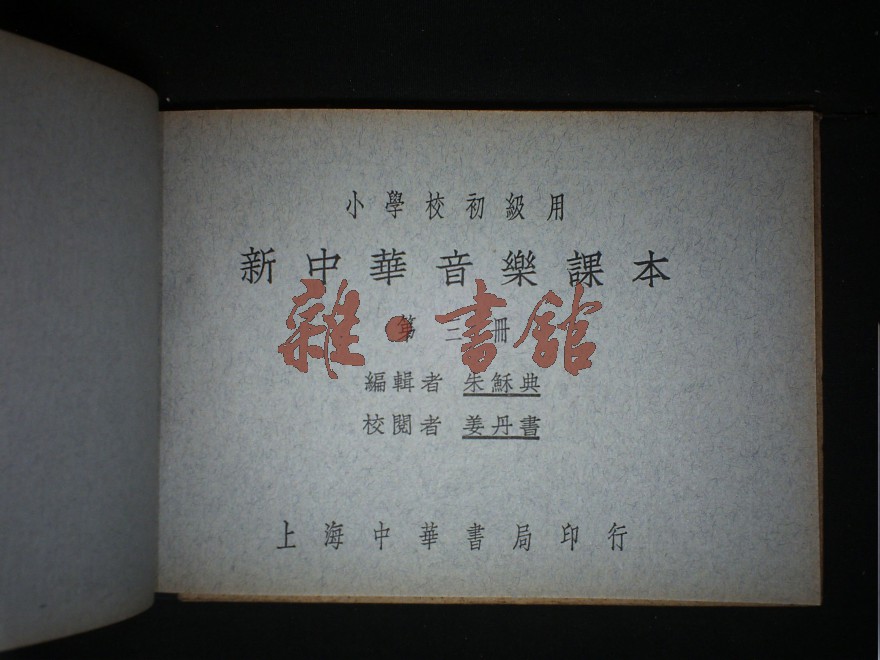 小學校初級用
新中華音樂課本
第三冊
雜·書館
編輯者 朱穌典
校閱者 姜丹書
上海中華書局印行